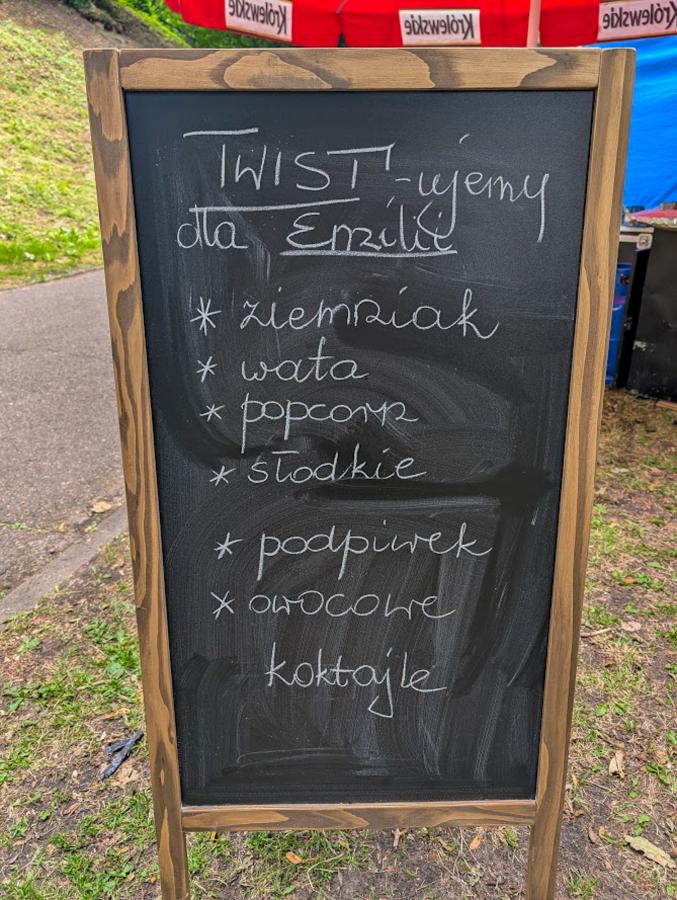 Królewskie Królewskie Królewskie
TWIST-ujemy
dla Emilii
* ziemniak
* wata
* popcorn
* słodkie
* podpiwek
* owocowe
koktajle